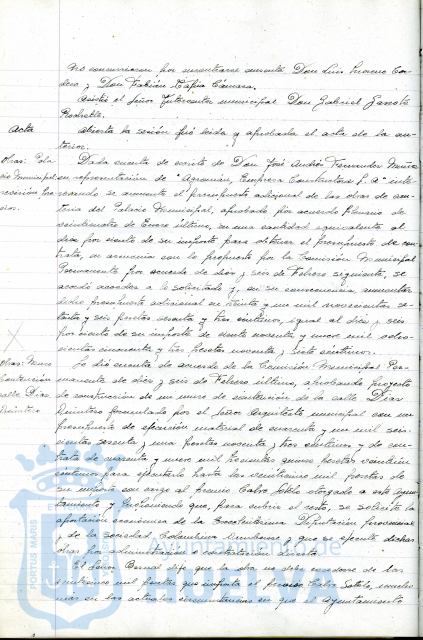 No concurrieron por encontrarse ausente Don Luis Moreno Cor-
dero y Don Fabián Tapia Cámara.
Asistió el Señor Interventor municipal Don Gabriel
Acta
Abierta la sesión fué leida y aprobada el acta de la an-
terior.
Obras: Pala
cio Municipal
Dada cuenta de escrito de Don José Fernandez Muñiz
en representación de "Agroman, Empresa Constructora S. A" inte-
resando se aumente el presupuesto adicional de las obras de can-
teria del Palacio Municipal, aprobado por acuerdo Plenario de
veintemueve de Enero último, en una cantidad equivalente al
diez por ciento de su importe para obtener el presupuesto de con-
trata, en armonia con lo propuesto por la Comisión Municipal
Permanente por acuerdo de diez y seis de Febrero siguiente, se
acordó acceder a lo solicitado y, en su consecuencia, aumentar
dicho presupuesto adicional en treinta y un mil novecientas se-
tenta y seis pesetas sesenta y tres centimos, igual al diez y seis
por ciento de su importe de ciento noventa y nueve mil ocho-
cientas cincuenta y tres pesetas noventa y siete centimos.
Obras: Muro
Contención
calle Diaz
Quintero
Se dió cuenta de acuerdo de la Comisión Municipal Per-
manente de diez y seis de Febrero último, aprobando proyecto
de construcción de un muro de contención de la calle Diaz
Quintero formulado por el Señor Arquitecto municipal con un
presupuesto de ejecución material de cuarenta y un mil seis-
cientas sesenta y una pesetas noventa y tres centimos y de con-
trata de cuarenta y nueve mil trescientas quince pesetas veintiun
centimos para ejecutarlo hasta las veinticinco mil pesetas de
su importe con cargo al premio Calvo Sotelo otorgado a este Ayun-
tamiento y proponiendo que, para cubrir el resto, se solicite la
aportación económica de la Excelentisima Diputación provincial
y de la Sociedad Colombina Onubense, y que se ejecute dichas
obras por administración o contratación directa.
El Señor Bernal dijo que la obra no debe excederse de las
veinticinco mil pesetas que importa el premio Calvo Sotelo, mucho
más en las actuales circunstancias en que el Ayuntamiento
PORTUS MARIS
Ayuntamiento de
HUELVA